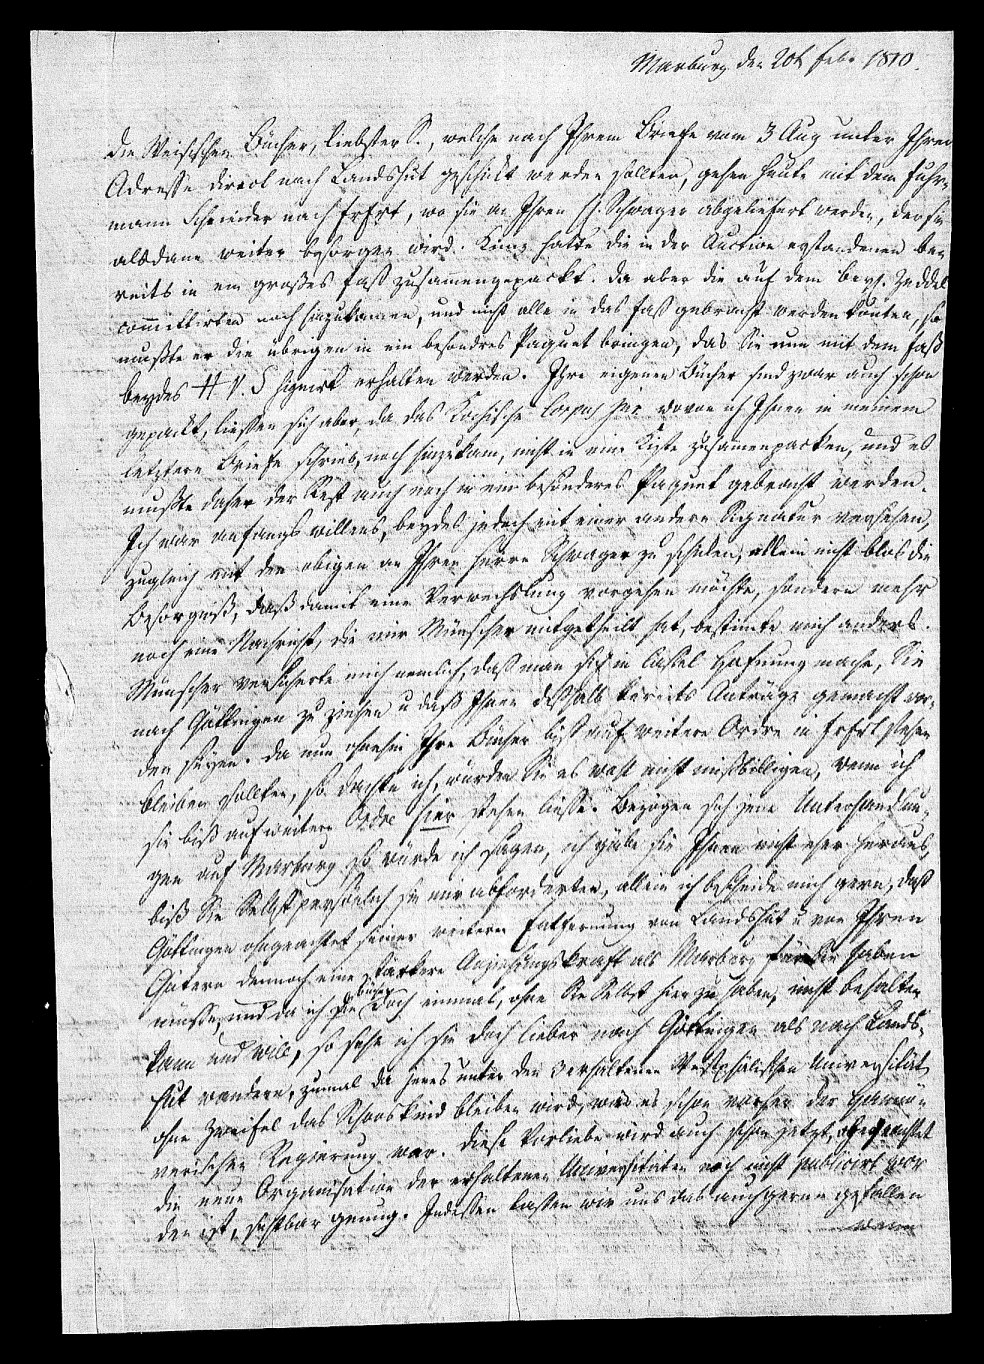 Marburg den 20t Febr 1810.
Die Weisischen Bücher, liebster S., welche nach Ihrem Briefe vom 3 Aug unter Ihrer
Adresse direct nach Landshut geschickt werden sollten, gehen heute mit dem Fuhr-
mann Schneider nach Frfrt, wo sie an Ihren H. Schwager abgeliefert werden, der sie
alsdann weiter besorgen wird. hatte die in der Auction erstandenen be-
reits in ein großes Faß zusammengepackt. Da aber die auf dem Zeddel
committirten noch hinzukamen, und nicht alle in das Faß gebracht werden konten, so
mußte er die übrigen in ein besondres Paquet bringen, das Sie nun mit dem Faß
beydes H. V. S signirt erhalten werden. Ihre eigenen Bücher sind zwar auch schon
gepackt, liessen sich aber, da das Kochische Corpus jur. wovon ich Ihnen in meinem
letztern Briefe schrieb, noch hinzukam, nicht in eine Kiste zusammenpacken, und es
mußte daher der Rest auch noch in ein besonderes Paquet gebracht werden.
Ich war anfangs willens, beydes jedoch mit einer andern Signatur versehen,
zugleich mit den obigen an Ihren Herrn Schwager zu schicken, allein nicht blos die
Besorgniß, daß damit eine Verwechslung vorgehen möchte, sondern mehr
noch eine Nachricht, die mir Münscher mitgetheilt hat, bestimte mich anders.
Münscher versicherte mich nemlich, daß man sich in Cassel Hofnung mache, Sie
nach Göttingen zu ziehen u daß Ihnen deßhalb bereits Anträge gemacht wor-
den seyen. Da nun ohnehin Ihre Bücher biß auf weitere Ordre in Frfrt stehen
bleiben sollten, so dachte ich, würden Sie es wohl nicht misbilligen, wenn ich
sie biß auf weitere Ordre hier stehen liesse. Bezögen sich jene Unterhandlun-
gen auf Marburg so würde ich sagen, ich gäbe sie Ihnen nicht eher heraus,
biß Sie Selbst persönlich sie mir abforderten, allein ich bescheide mich gern, daß
Göttingen ohngeachtet seiner weitern Entfernung von Landshut u von Ihren
Gütern dennoch eine stärkere Anziehungskraft als Marburg für Sie haben
müsse, und da ich die Bücher doch einmal, ohne Sie Selbst hier zu haben, nicht behalten
kann und will, so sehe ich sie doch lieber nach Göttingen als nach Lands-
hut wandern, zumal da jenes unter den 3 erhaltenen Westphälischen Universitäten
ohne Zweifel das Schooskind bleiben wird, was es schon vorher der Hannö-
verischen Regierung war. Diese Vorliebe wird auch schon jetzt, ohngeachtet
die neue Organisation der erhaltenen Universitäten noch nicht publicirt wor
den ist, sichtbar genug. Indessen lassen wir uns das auch gerne gefallen
wenn